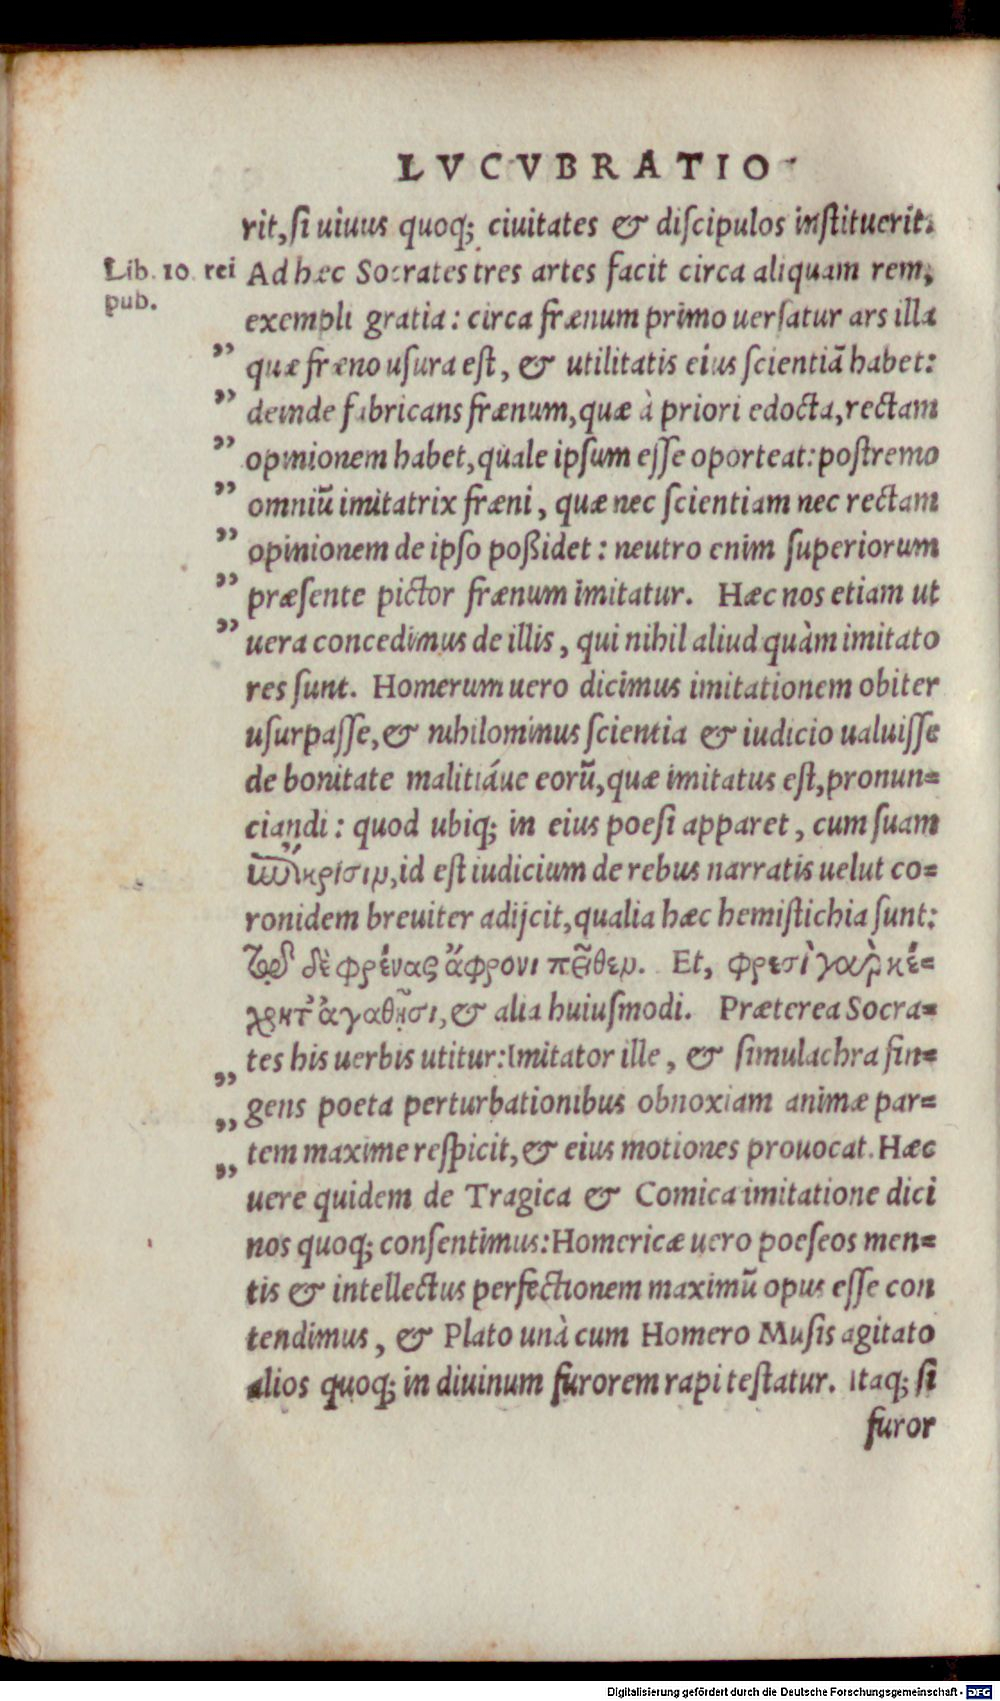 LVCVBRATIO
rit, si uiuus quoq; ciuitates & discipulos instituerit.
Lib. 10. rei
pub.
Ad hæc Socrates tres artes facit circa aliquam rem,
exempli gratia: circa frænum primo uersatur ars illa
„ quæ fræno usura est, & utilitatis eius scientiā habet:
„ deinde fabricans frænum, quæ à priori edocta, rectam
„ opinionem habet, quale ipsum esse oporteat: postremo
„ omniū imitatrix fræni, quæ nec scientiam nec rectam
„ opinionem de ipso poßidet: neutro enim superiorum
„ præsente pictor frænum imitatur. Hæc nos etiam ut
„ uera concedimus de illis, qui nihil aliud quàm imitato
res sunt. Homerum uero dicimus imitationem obiter
usurpasse, & nihilominus scientia & iudicio ualuisse
de bonitate malitiáue eorū, quæ imitatus est, pronun=
ciandi: quod ubiq; in eius poesi apparet, cum suam
ὑπόκρισιν, id est iudicium de rebus narratis uelut co=
ronidem breuiter adijcit, qualia hæc hemistichia sunt:
τῷ δὲ φρένας ἄφρονι πεῖθεν. Et, φρεσὶ γὰρ κέ=
χρητ᾽ ἀγαθῇσι, & alia huiusmodi. Præterea Socra=
„ tes his uerbis utitur: Imitator ille, & simulachra fin=
„ gens poeta perturbationibus obnoxiam animæ par=
„ tem maxime respicit, & eius motiones prouocat. Hæc
uere quidem de Tragica & Comica imitatione dici
nos quoq; consentimus: Homericæ uero poeseos men=
tis & intellectus perfectionem maximū opus esse con
tendimus, & Plato unà cum Homero Musis agitato
alios quoq; in diuinum furorem rapi testatur. Itaq; si
furor
Digitalisierung gefördert durch die Deutsche Forschungsgemeinschaft - DFG